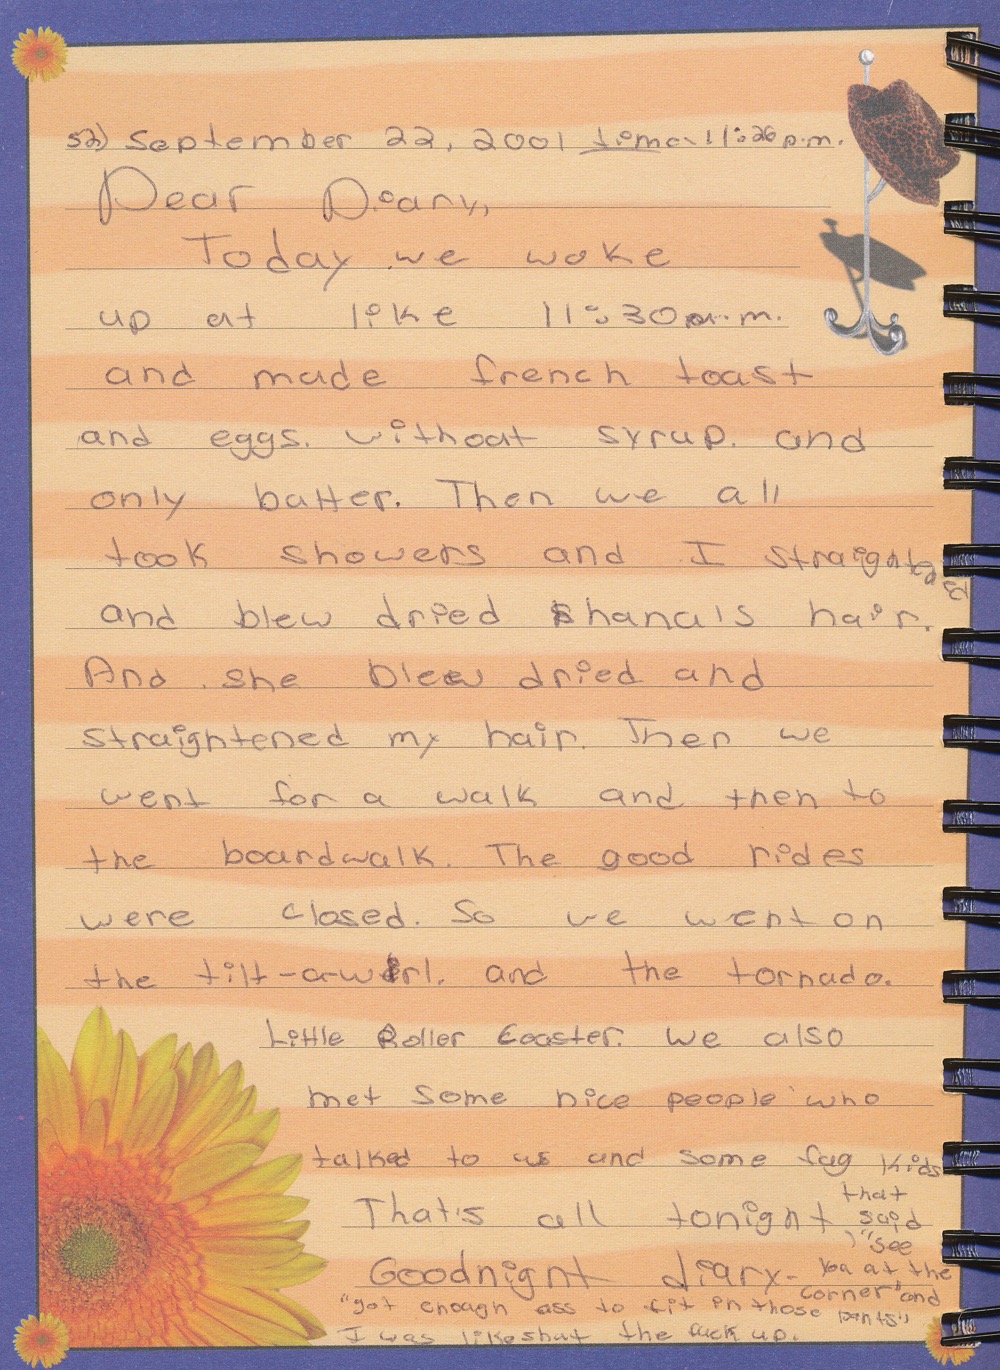 52) September 22, 2001 time: 11:26 p.m.
Dear Diary,
Today we woke
up at like 11:30 a.m.
and made french toast
and eggs. without syrup. and
only butter. Then we all
took showers and I straightened
and blew dried Shana's hair.
And she blew dried and
straightened my hair. Then we
went for a walk and then to
the boardwalk. The good rides
were closed. So we went on
the tilt-a-wirl. and the tornado.
Little Roller Coaster. We also
met some nice people who
talked to us and some fag kids
that
That's all tonight said
"see
Goodnight diary- you at the
corner" and
"got enough ass to fit in those pants"
I was like shut the fuck up.